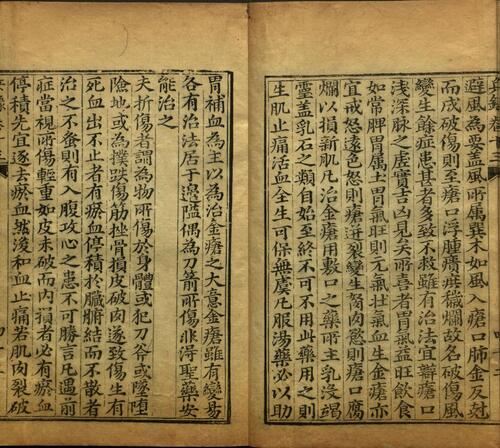 避風為要蓋肺属巽木如風入瘡口肺金反尅
而成破傷風則至瘡口浮腫瘡痒穢爛故名破傷風
變生餘症患其者多致不救雖有治法宜辯瘡口
淺深脉之虛實吉凶見矣所喜者胃氣益旺飲食
如常脾胃属土胃氣旺則元氣壯氣血生金瘡亦
宜戒怒遠色怒則瘡迸裂變生胬肉慾則瘡口腐
爛以損新肌凡治金瘡用敷口之藥所主乳没竭
靈蓋乳石之類自始至終不可不用此藥用之則
生肌止痛活血全生可保無虞凡服湯藥必以助
胃補血為主以為治金瘡之大意金瘡雖有變易
各有治法居于邊隘偶為刀箭所傷非得聖藥安
能治之
夫折傷者謂為物所傷於身體或犯刀斧或墜堕
險地或為撲跌傷筋挫骨損皮破肉遂致傷生有
死血出不止者有瘀血停積於臟腑結而不散者
治之不蚤則有入腹攻心之患不可勝言凡遇前
症當視所傷輕重如皮未破而内損者必有瘀血
停積先宜逐去瘀血然後和血止痛若肌肉裂破